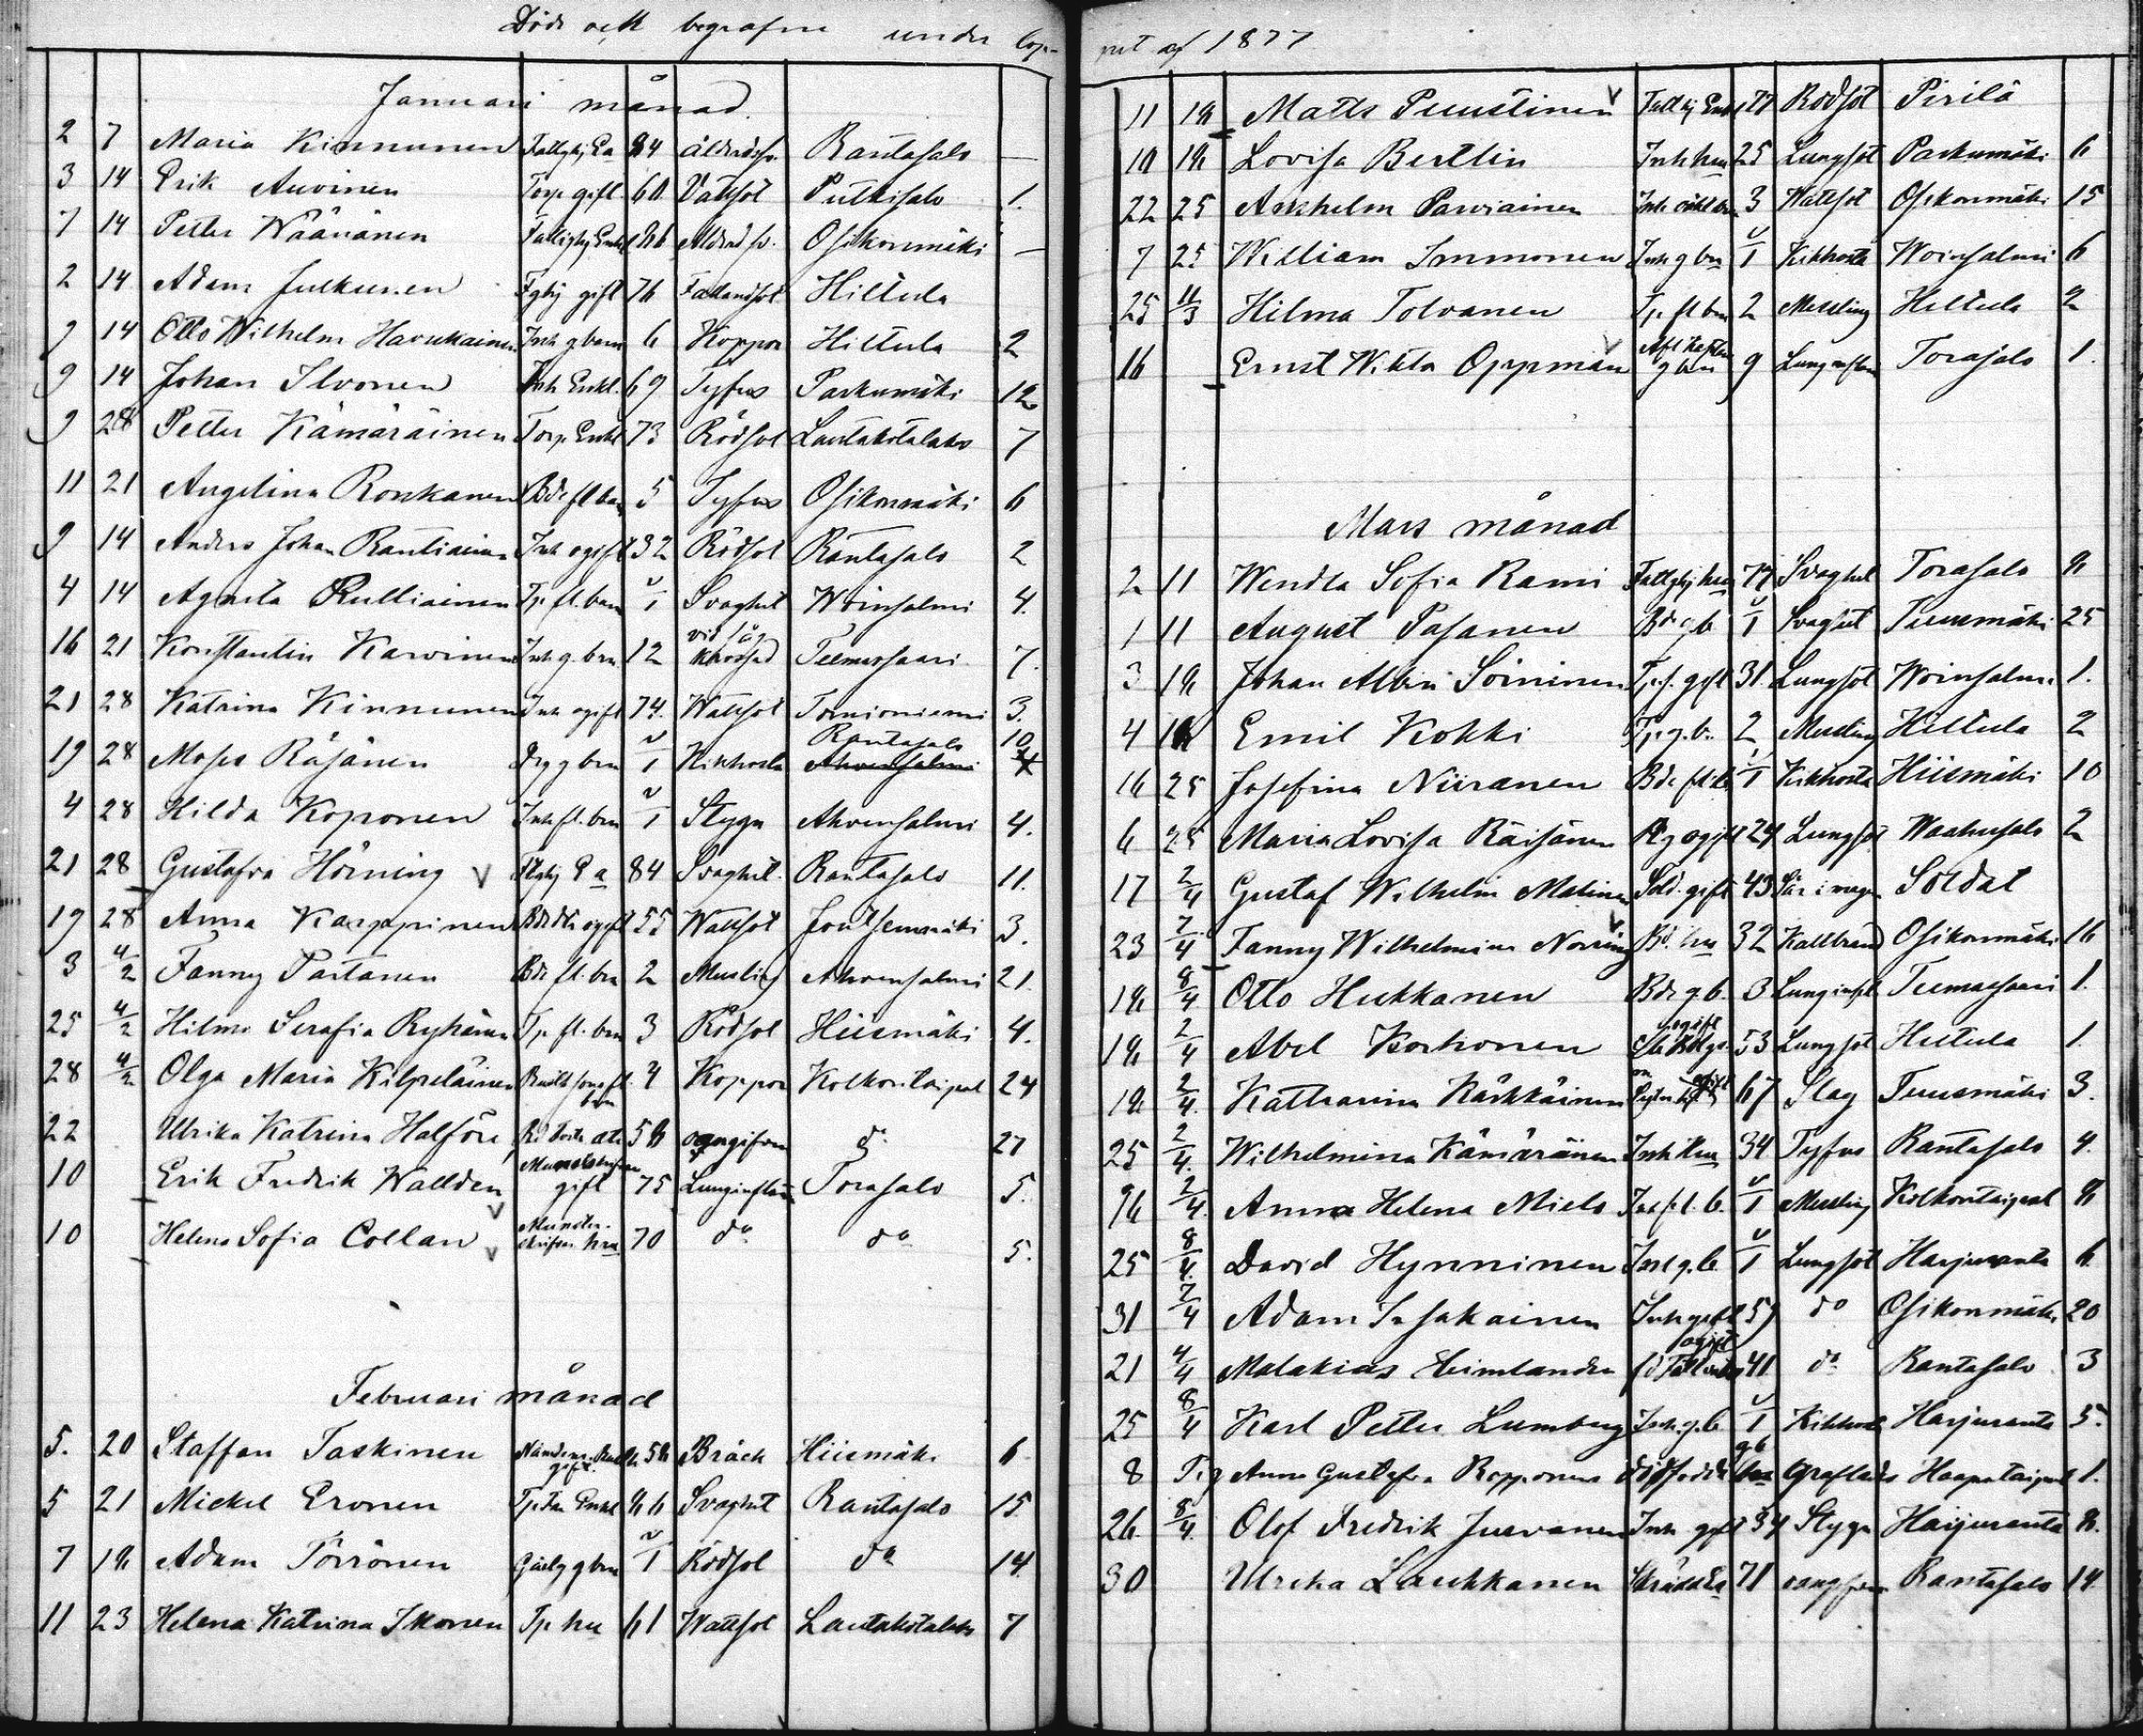 Döde och begrafne under lop-
Januari månad.
2 7 Maria Kinnunen Fattighj Ea 84 Ålderdsv. Rantasalo —
3 14 Erik Auvinen Torp. gift. 60 Vattsot Putkisalo 1.
7 14 Petter Wäänänen Fattighj Enkl. 86 Ålderd sv. Osikonmäki —
2 14 Adam Julkunen Fghj gift 76 Fallandsot Hiltula
9 14 Otto Wilhelm Havukainen Inh g barn 6 Koppor Hiltula 2
9 14 Johan Ilvonen Inh Enkl. 69 Tyfus Parkumäki 12
9 28 Petter Kämäräinen Torp. Enkl 73 Rödsot Lautakotalaks 7
11 21 Angelina Ronkanen Bde fl barn 5 Tyfus Osikonmäki 6
9 14 Anders Johan Rautiainen Inh ogift 32 Rödsot Rantasalo 2
4 14 Agneta Rulliainen Tp. fl. barn u/1 Svaghet Woinsalmi 4.
16 21 Konstantin Karvinen Inh g. brn 12 vid såg krossad Telmassaari 7.
21 28 Katrina Kinnunen Inh ogift 74. Wattsot Tornioniemi 3.
19 28 Moses Räsänen Drg g brn u/1 Kikhosta Rantasalo Ahvensalmi 10
4 28 Hilda Koponen Inh fl. brn u/1 Stygn Ahvensalmi 4.
21 28 Gustafva Hörning v Ftghj E a 84 Svaghet. Rantasalo 11.
19 28 Anna Karppinen Bdedtr ogift 55 Wattsot Joutsenmäki 3.
3 4/2 Fanny Partanen Bde fl. brn 2 Messling Ahvensalmi 21.
25 4/2 Hilma Serafia Ryhänen Tp. fl. brn 3 Rödsot Hiismäki 4.
28 4/2 Olga Maria Kilpeläinen fl. brn 4 Koppor Kolkontaipal 24
22 Ulrika Katrina Halfors 58 oangifven do 27
10 Erik Fredrik Wallden v gift 75 Lunginflam Torasalo 5.
10 Helena Sofia Collan v Mönsterskrifvare hru 70 do do 5.
Februari månad
5. 20 Staffan Taskinen Nämndem. gift. 58 Bråck Hiismäki 6
5 21 Mickel Eronen Tp. Enkl 86 Svaghet Rantasalo 15
7 18 Adam Törrönen g brn u/1 Rödsot do 14.
11 23 Helena Katrina Ikonen Tp hu 61 Wattsot Lautakotalaks 7
pet af 1877
11 18 Matts Puustinen v Fattighj Enkl 77 Rödsot Pirilä
10 18 Lovisa Bertlin Inh hu 25 Lungsot Parkumäki 6
22 25 Anshelm Parviainen Inh brn 3 Wattsot Osikonmäki 15
7 25 William Immonen Inh g brn u/1 Kikhosta Woinsalmi 6
25 11/3 Hilma Tolvanen Tp. fl brn 2 Messling Hiltula 2
16 Ernst Wiktor Oppman v g brn 9 Lunginflam Torasalo 1.
Mars månad
2 11 Wendla Sofia Rami Fattghj hu 77 Svaghet Torasalo 8
1 11 August Pasanen Bde g b. u/1 Svaghet Tuusmäki 25
3 18 Johan Albin Soininen Tp. s. gift 31. Lungsot Woinsalmi 1.
4 18 Emil Kokki Tp. g. b. 2 Messling Hiltula 2
16 25 Josefina Niiranen Bde fl b. u/1 Kikhosta Hiismäki 10
6 25 Maria Lovisa Räisänen ogift 24 Lungsot Waahersalo 2
17 2/4 Gustaf Wilhelm Malinen Sold. gift 43 Sår i magen Soldat
23 7/4 Fanny Wilhelmina Norring v Bd. hu 32 Kallbrand Osikonmäki 16
18 8/4 Otto Hukkanen Bde g. b. 3 Lunginfl. Telmassaari 1.
18 2/4 Abel Korhonen ogift 53 Lungsot Hiltula 1
18 2/4. Katharina Kärkkäinen 67 Slag Tuusmäki 3.
25 2/4. Wilhelmina Kämäräinen Inh Hu 34 Tyfus Rantasalo 4.
16 2/4. Anna Helena Mielo Inh f. l. b. u/1 Messling Kolkontaipal 8
25 8/4. David Hynninen Inh g. b. u/1 Lungsot Harjuranta 6
31 7/4 Adam Insakainen Inh gift 59 do Osikonmäki 20
21 4/4 Malakias Heimlander ogift 41 do Rantasalo 3
25 8/4 Karl Petter Lumberg Inh. g. b u/1 Kikhosta Harjuranta 5.
8 Anna Gustafva Ropponens dödfödda g b Haapataipal 1.
26 8/4. Olof Fredrik Juvanen Inh gift 34 Stygn Harjuranta 8.
30 Ulrika Laukkanen Skrädd Ea 71 oangifven Rantasalo 14.